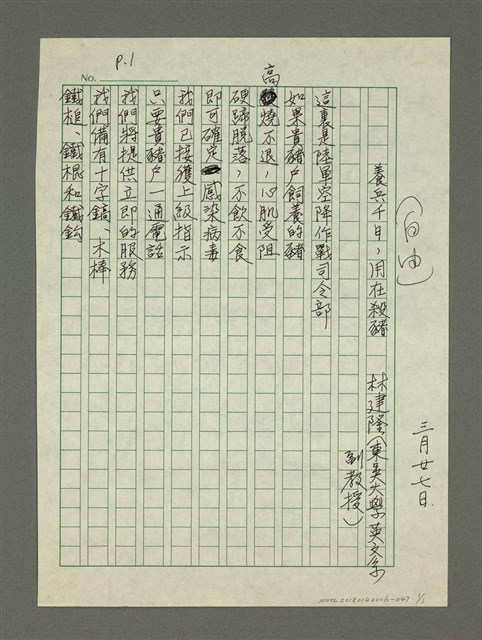 三月廿七日
(自由)
養兵千日，用在殺豬
林建隆(東吳大學英文系
副教授)
這裏是陸軍空降作戰司令部
如果貴豬戶飼養的豬
高燒不退，心肌受阻
硬蹄脫落，不飲不食
即可確定感染病毒
我們已接獲上級指示
只要貴豬戶一通電話
我們將提供立即的服務
我們備有十字鎬、木棒
鐵槌、鐵棍和鐵鉤
No. P.1
NMTL20120140006-047 1/2